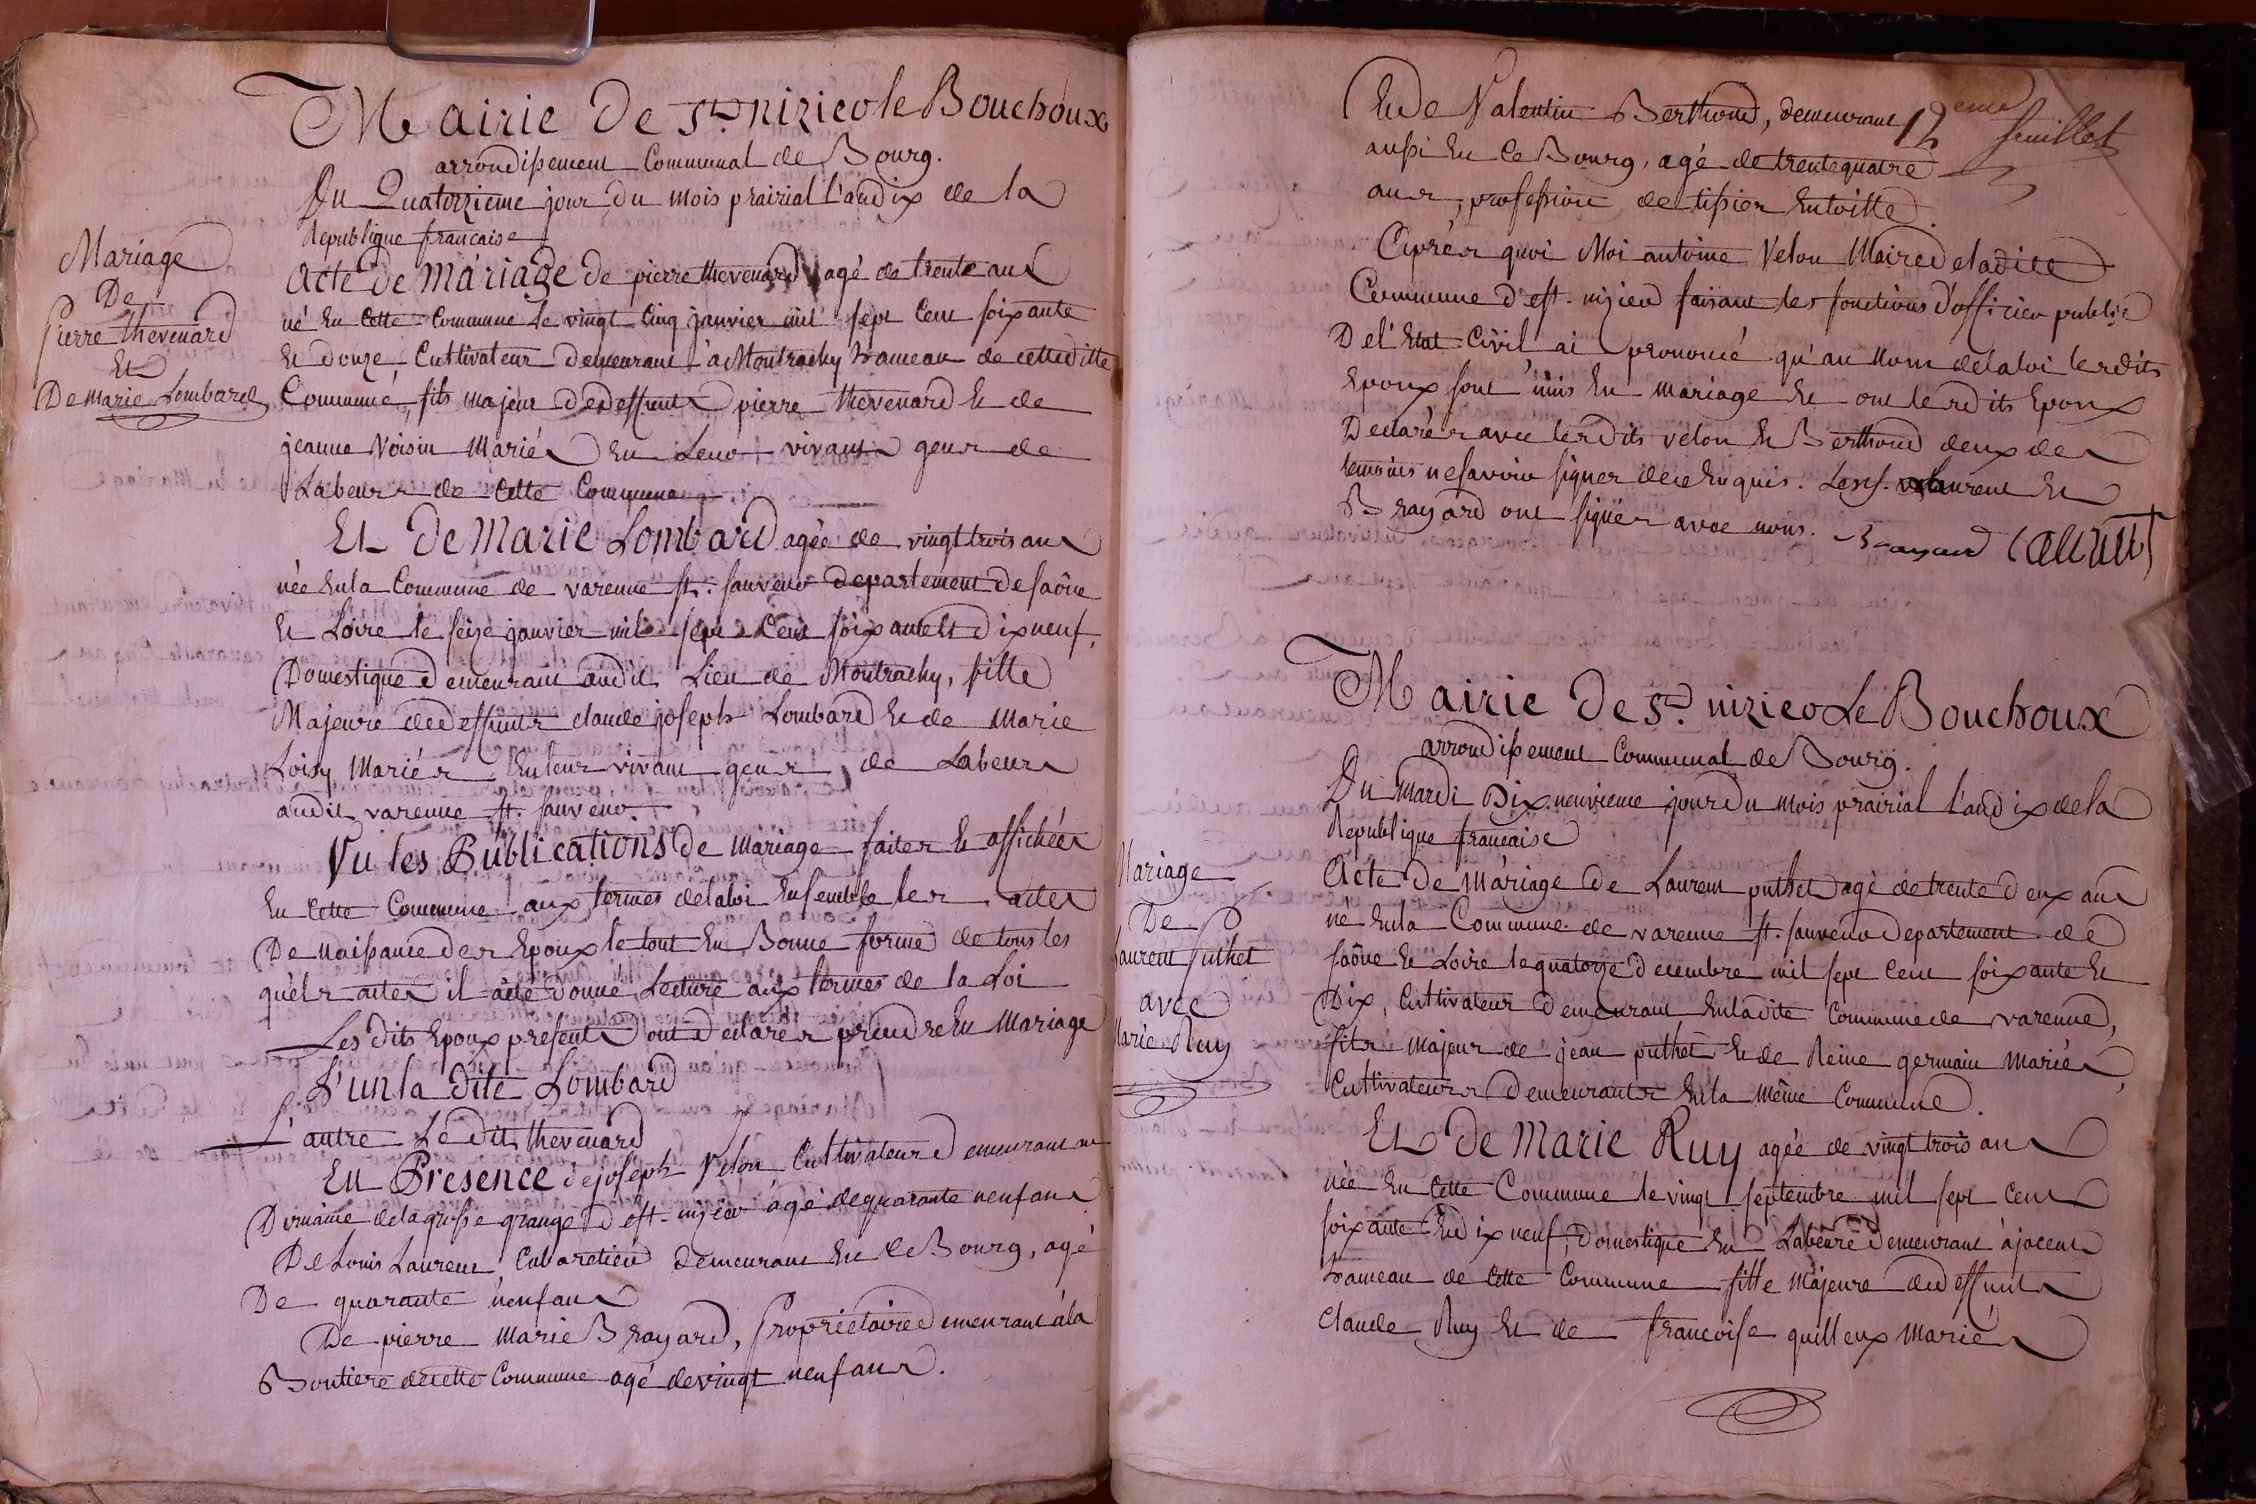 Mairie de St. nizier le Bouchoux
arrondissement Communal de Bourg.
Du Quatorzieme jour du mois prairial l'an dix de la
Republique francaise
Mariage
De
Pierre thevenard
Et
De marie Lombard
Acte de mariage de pierre thevenard agé de trente ans
né en Cette Commune le vingt Cinq janvier mil sept Cent soixante
et douze, Cultivateur demeurant à Montrachy hameau de cette ditte
Commune, fils majeur de deffunts pierre thevenard et de
jeanne Voisin Mariés en Leur vivant gens de
Labeurs de Cette Commune
Et De Marie Lombard agée de vingt trois ans
née en la Commune de varenne st. sauveur departement de saône
et Loire le seize janvier mil sept Cent soixante et dix neuf,
Domestique demeurant audit Lieu de Montrachy, fille
Majeure de deffunts claude joseph Lombard et de Marie
Loisy Mariés en leur vivant gens de Labeurs
audit varenne st. sauveur.
Vu les Publications de mariage faites et affichées
en Cette Commune aux termes de la loi ensemble les actes
De naissance des Epoux le tout en Bonne forme de tous les
quels actes il a été donné Lecture aux termes de la Loi
Les dits Epoux presents ont declarés prendre en Mariage
L'un la dite Lombard
L'autre Le dit thevenard
En Presence de joseph Velon Cultivateur demeurant au
Domaine de la grosse grange d est. nizier agé de quarante neuf ans
De Louis Laurent, Cabaretier demeurant en ce Bourg, agé
De quarante neuf ans
De pierre Marie Brayard, Propriétaire demeurant à la
Boutiere de cette Commune agé de vingt neuf ans.
12eme
feuillet
Et de Valentin Berthoud, demeurant
aussi en ce Bourg, agé de trente quatre
ans, profession de tissier en toille
Après quoi Moi antoine Velon Maire de la dite
Commune d'est. nizier faisant les fonctions d'officier public
De l'Etat Civil ai prononcé qu'au nom de la loi les dits
Epoux sont unis en mariage et ont les dits Epoux
Declarés avec les dits velon et Berthoud deux des
temoins ne savoir signer de ce enquis. Les s. Laurent et
Brayard ont signés avec nous. Brayard Laurent
Mairie de St. nizier Le Bouchoux
arrondissement Communal de Bourg.
Du Mardi Dix neuvieme jour du mois prairial l'an dix de la
Republique francaise
Mariage
De
Laurent Puthet
avec
Marie Ruy
Acte de mariage de Laurent puthet agé de trente deux ans
né en la Commune de varenne st. sauveur departement de
saône et Loire le quatorze decembre mil sept Cent soixante et
Dix, Cultivateur demeurant en la dite Commune de varenne,
fils majeur de jean puthet et de Reine germain mariés
Cultivateurs Demeurants en la même Commune.
Et de Marie Ruy agée de vingt trois ans
née en Cette Commune le vingt septembre mil sept Cent
soixante et dix neuf, domestique en Labeure demeurant à jacent
hameau de Cette Commune fille majeure de deffunts
Claude Ruy et de francoise quilleux mariés